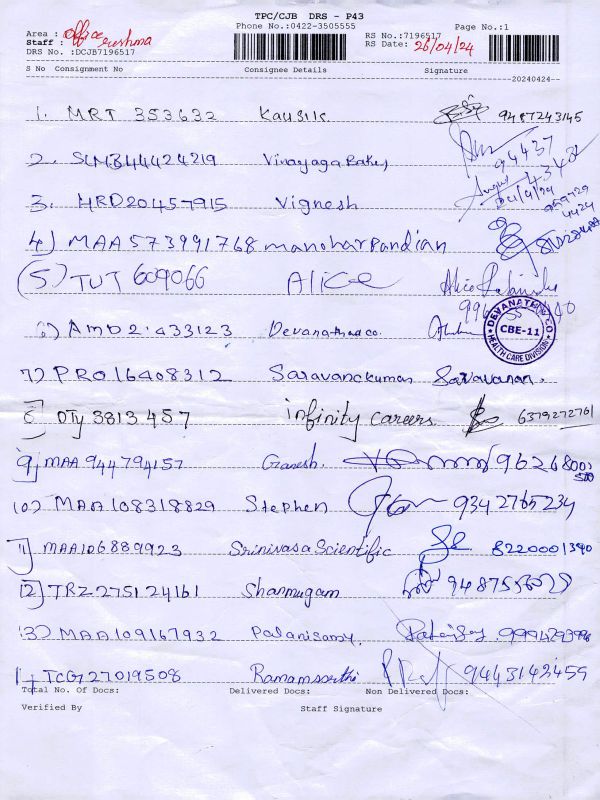 TPC/CJB DRS - P43
Phone No.:0422-3505555 Page No.:1
Area : office RS No.:7196517
Staff : sushma RS Date: 26/04/24
DRS No. :DCJB7196517
S No Consignment No Consignee Details Signature
20240424
1. MRT 353632 Kausik 9487243145
2. SLM344424219 Vinayaga Bakes 94437
43431
3. HRD20457915 Vignesh 24/4/24
4) MAA 573991768 manoharpandian
(5) TUT 609066 Alice Alice
6) AMD2.433123 Devanathan co. DEVANATHAN CO CBE-11 HEALTH CARE DIVISION
7) PRO16408312 Saravanakumar Saravanan.
8] OTY 3813457 infinity careers. 6379272761
9] MAA 944794157 Ganesh. 96268001
10) MAA 108318829 Stephen 9342765234
11] MAA106889923 Srinivasa Scientific 8220001390
12] TRZ 275124161 Shanmugam
13) MAA109167932 Palanisamy.
14 TCG727019508 Ramamoorthi 9443142459
Total No. Of Docs: Delivered Docs: Non Delivered Docs:
Verified By Staff Signature